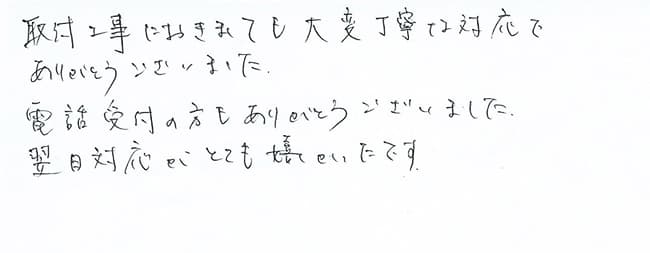 取付工事におきましても大変丁寧な対応で
ありがとうございました.
電話受付の方もありがとうございました.
翌日対応がとても嬉しかったです.